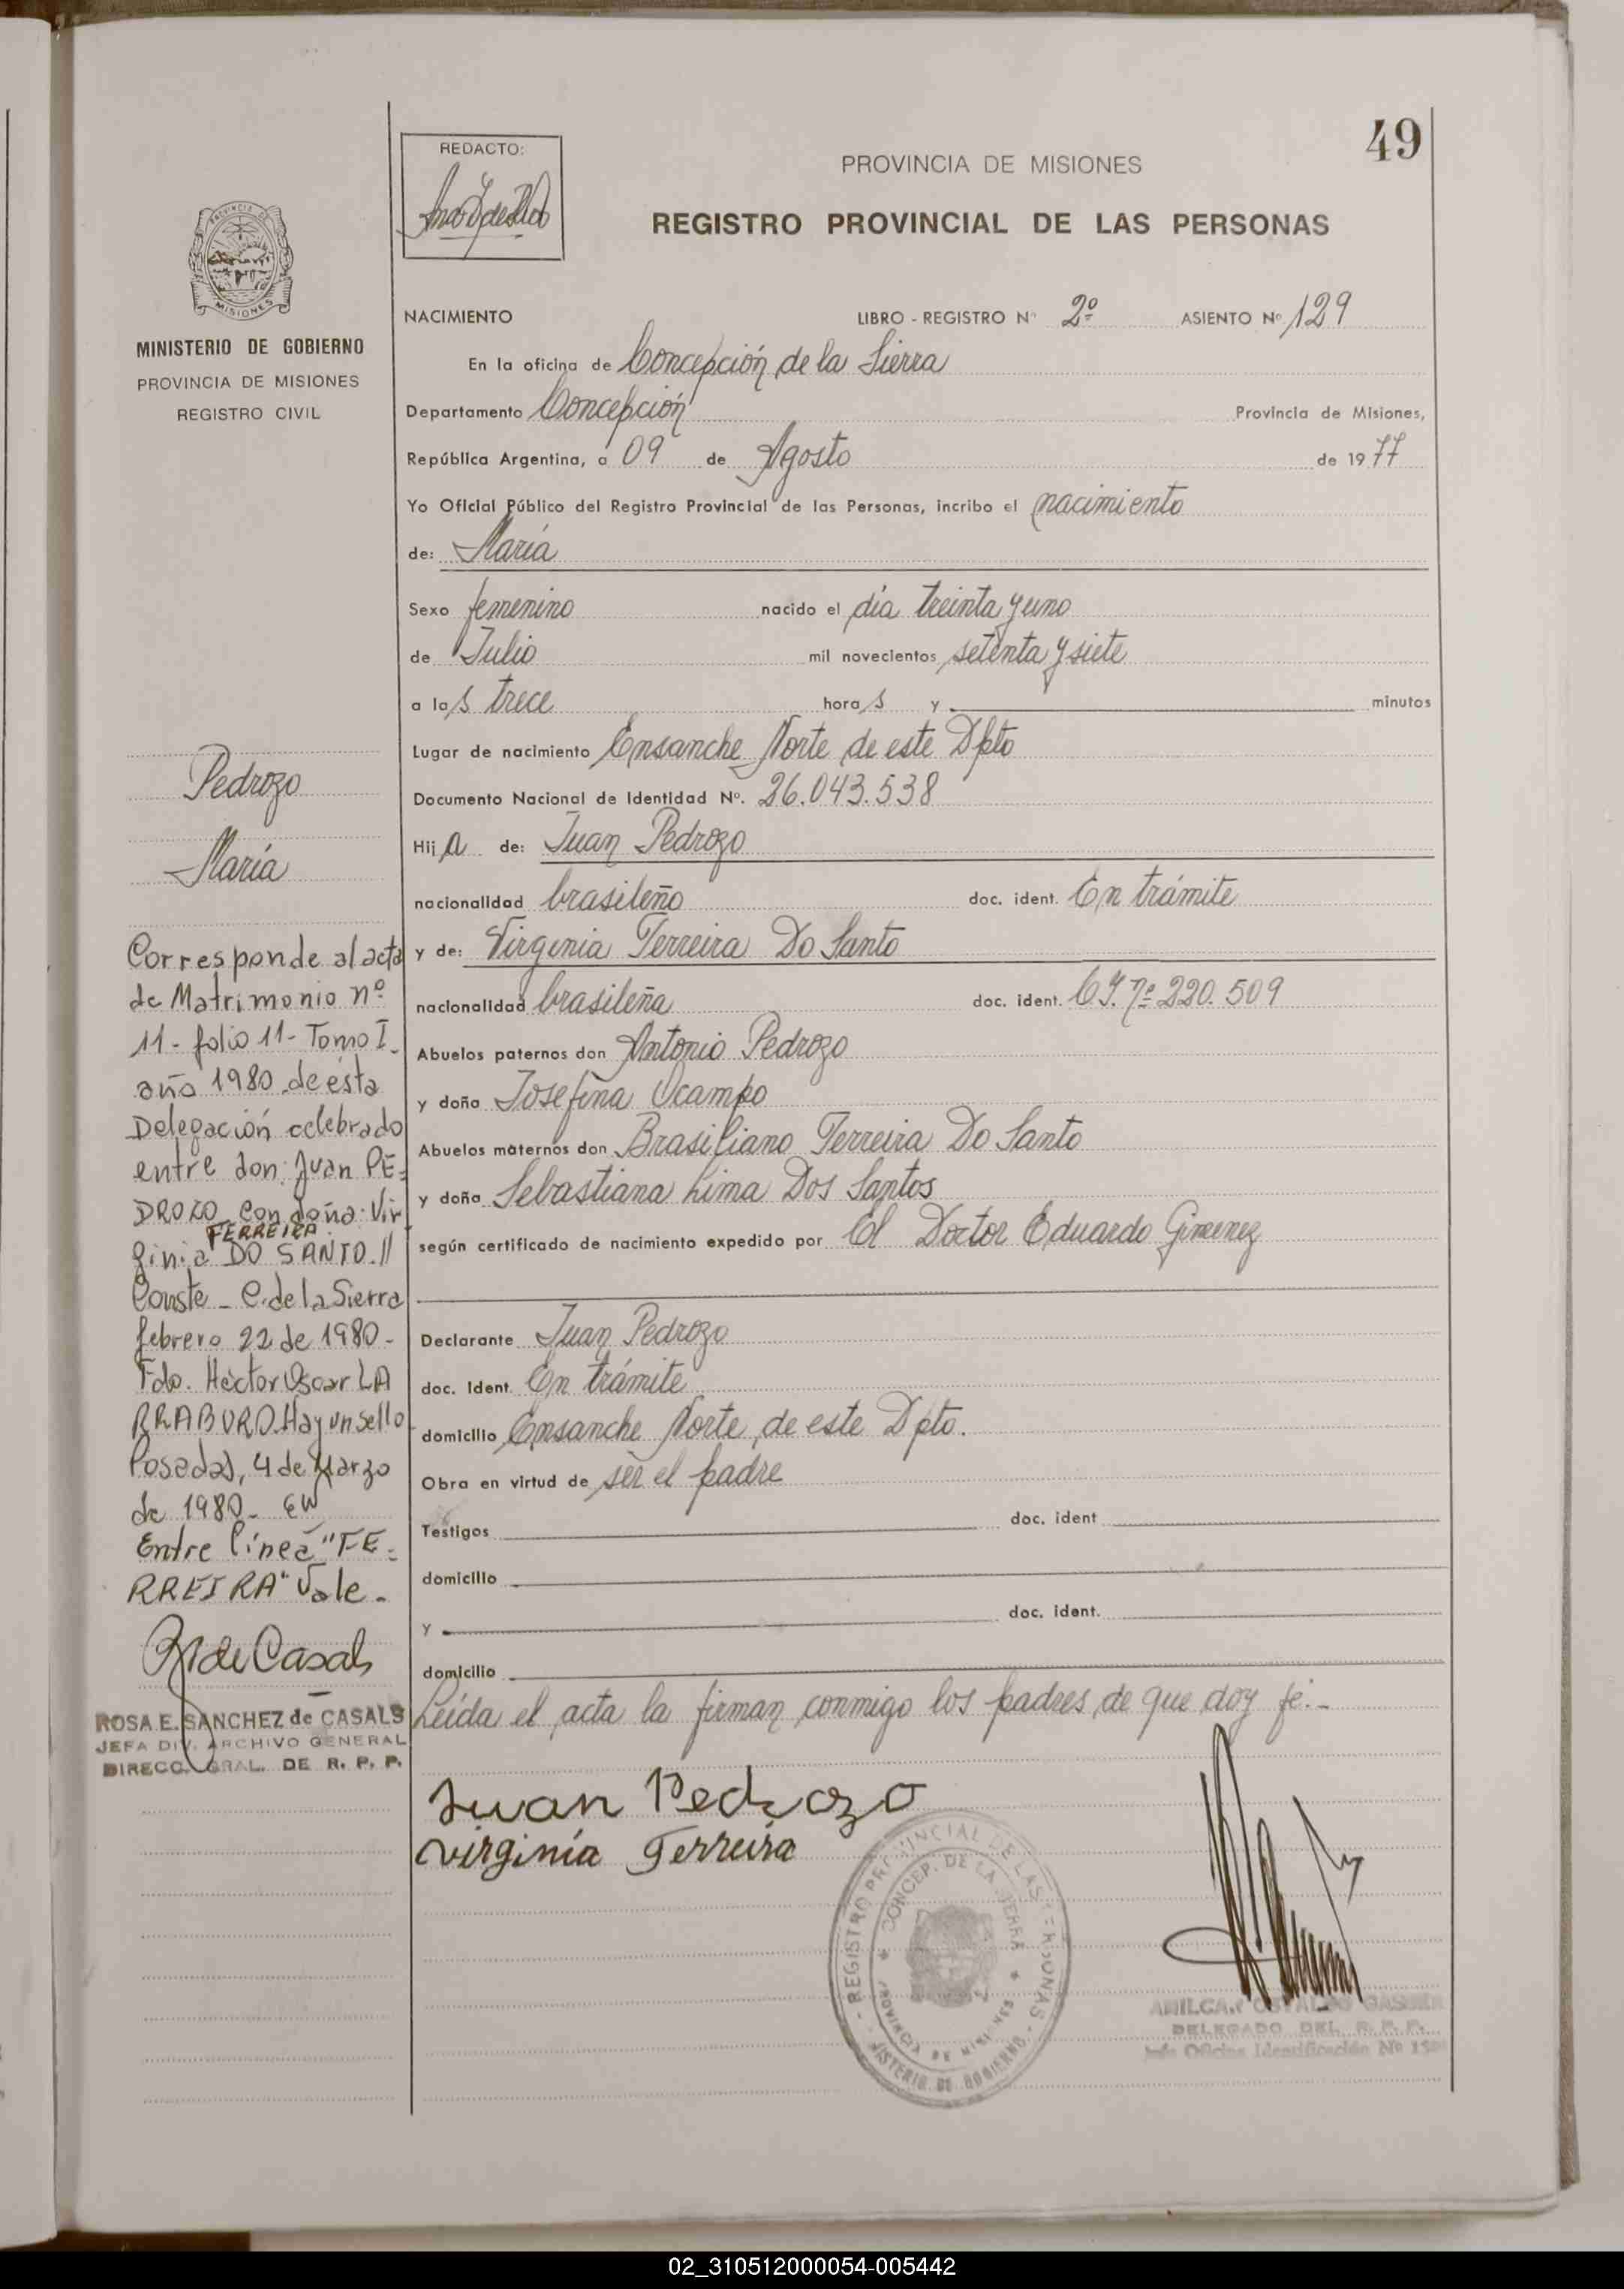 49
REDACTO:
PROVINCIA DE MISIONES
REGISTRO PROVINCIAL DE LAS PERSONAS
PROVINCIA DE
MISIONES
MINISTERIO DE GOBIERNO
PROVINCIA DE MISIONES
REGISTRO CIVIL
NACIMIENTO LIBRO - REGISTRO Nº 2º ASIENTO Nº 129
En la oficina de Concepción de la Sierra
Departamento Concepción Provincia de Misiones,
República Argentina, a 09 de Agosto de 1977
Yo Oficial Público del Registro Provincial de las Personas, incribo el nacimiento
de: María
Sexo femenino nacido el día treinta y uno
de Julio mil novecientos setenta y siete
a las trece horas y minutos
Lugar de nacimiento Ensanche Norte de este Dpto
Documento Nacional de Identidad Nº. 26.043.538
Hija de: Juan Pedrozo
nacionalidad brasileño doc. ident. En trámite
y de: Virginia Ferreira Do Santo
nacionalidad brasileña doc. ident. C.I. nº 220.509
Abuelos paternos don Antonio Pedrozo
y doña Josefina Ocampo
Abuelos maternos don Brasiliano Ferreira Do Santo
y doña Sebastiana Lima Dos Santos
según certificado de nacimiento expedido por El Doctor Eduardo Gimenez
Declarante Juan Pedrozo
doc. Ident. En trámite
domicilio Ensanche Norte de este Dpto.
Obra en virtud de ser el padre
Testigos doc. ident
domicilio
y doc. ident.
domicilio
Leída el acta la firman conmigo los padres de que doy fé.-
Juan Pedrozo
Virginia Ferreira
Pedrozo
María
Corresponde al acta
de Matrimonio nº
11- folio 11- Tomo I-
año 1980 de esta
Delegación celebrado
entre don: Juan PE-
DROZO con doña: Vir
FERREIRA
ginia DO SANTO.//
Conste - C. de la Sierra
febrero 22 de 1980-
Fdo. Héctor Oscar LA
RRABURO. Hay un sello
Posadas, 4 de Marzo
de 1980-
Entre línea "FE-
RREIRA" Vale.
R. de Casals
ROSA E. SANCHEZ de CASALS
JEFA DIV. ARCHIVO GENERAL
DIRECC. GRAL. DE R. P. P.
REGISTRO PROVINCIAL DE LAS PERSONAS
CONCEP. DE LA SIERRA
PROVINCIA DE MISIONES
MINISTERIO DE GOBIERNO
AMILCAR OSVALDO
DELEGADO DEL R. P. P.
Jefe Oficina Identificación Nº
02_310512000054-005442